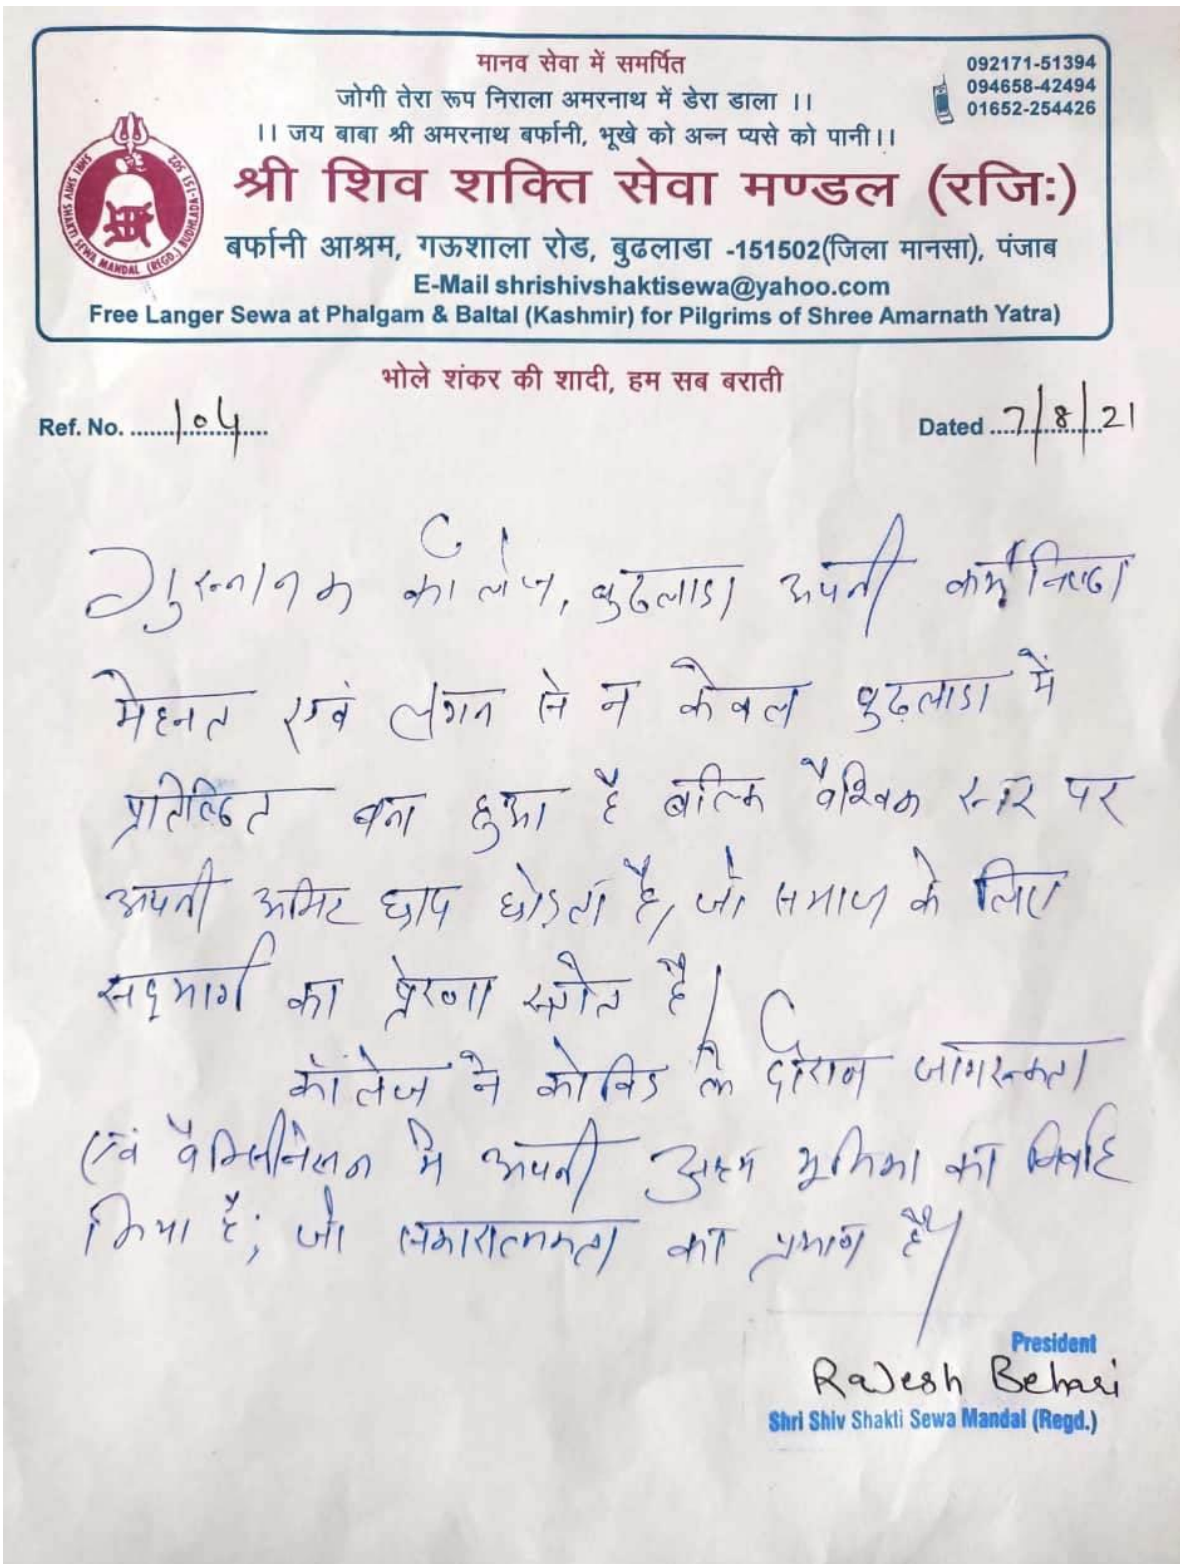 मानव सेवा में समर्पित
जोगी तेरा रूप निराला अमरनाथ में डेरा डाला ।।
।। जय बाबा श्री अमरनाथ बर्फानी, भूखे को अन्न प्यसे को पानी।।
092171-51394
094658-42494
01652-254426
SHRI SHIV SHAKTI SEWA MANDAL (REGD.) BUDHLADA-151 502
श्री शिव शक्ति सेवा मण्डल (रजिः)
बर्फानी आश्रम, गऊशाला रोड, बुढलाडा -151502(जिला मानसा), पंजाब
E-Mail shrishivshaktisewa@yahoo.com
Free Langer Sewa at Phalgam & Baltal (Kashmir) for Pilgrims of Shree Amarnath Yatra)
भोले शंकर की शादी, हम सब बराती
Ref. No. ....104....
Dated ...7/8/21
गुरुनानक कॉलेज, बुढलाडा अपनी कर्मनिष्ठा
मेहनत एवं लगन से न केवल बुढ़लाडा में
प्रतिष्ठित बना हुआ है बल्कि वैश्विक स्तर पर
अपनी अमिट छाप छोड़ता है, जो समाज के लिए
सद्मार्ग का प्रेरणा स्त्रोत है।
कॉलेज ने कोविड के दौरान जागरूकता
एवं वैक्सीनेशन में अपनी भूमिका का निर्वाह
किया है; जो सकारात्मकता का प्रमाण है।
President
Rajesh Behari
Shri Shiv Shakti Sewa Mandal (Regd.)